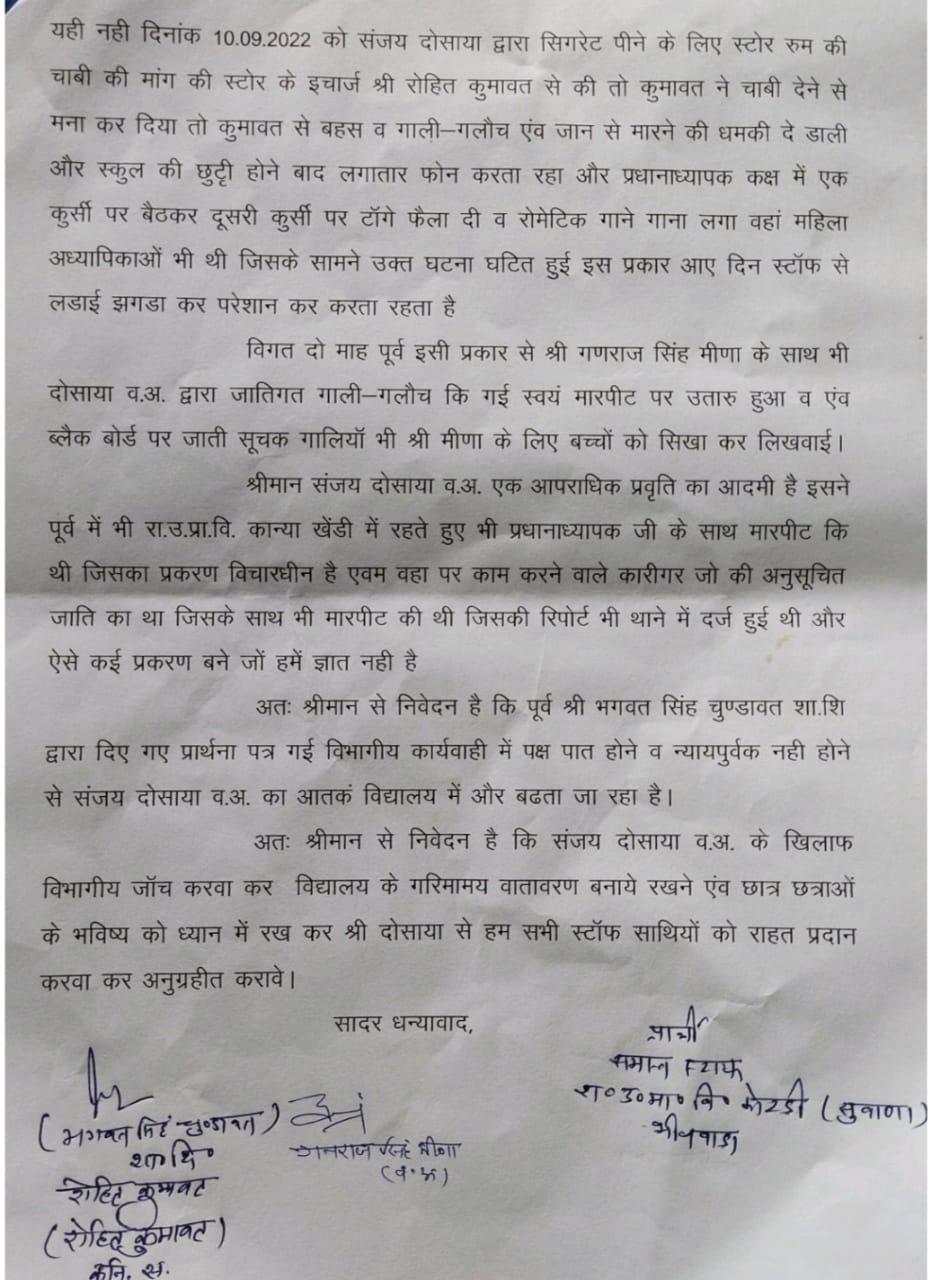 यही नही दिनांक 10.09.2022 को संजय दोसाया द्वारा सिगरेट पीने के लिए स्टोर रुम की
चाबी की मांग की स्टोर के इचार्ज श्री रोहित कुमावत से की तो कुमावत ने चाबी देने से
मना कर दिया तो कुमावत से बहस व गाली–गलौच एंव जान से मारने की धमकी दे डाली
और स्कुल की छुट्टी होने बाद लगातार फोन करता रहा और प्रधानाध्यापक कक्ष में एक
कुर्सी पर बैठकर दूसरी कुर्सी पर टॉगे फैला दी व रोमेटिक गाने गाना लगा वहां महिला
अध्यापिकाओं भी थी जिसके सामने उक्त घटना घटित हुई इस प्रकार आए दिन स्टॉफ से
लडाई झगडा कर परेशान कर करता रहता है
विगत दो माह पूर्व इसी प्रकार से श्री गणराज सिंह मीणा के साथ भी
दोसाया व.अ. द्वारा जातिगत गाली–गलौच कि गई स्वयं मारपीट पर उतारु हुआ व एंव
ब्लैक बोर्ड पर जाती सूचक गालियॉ भी श्री मीणा के लिए बच्चों को सिखा कर लिखवाई।
श्रीमान संजय दोसाया व.अ. एक आपराधिक प्रवृति का आदमी है इसने
पूर्व में भी रा.उ.प्रा.वि. कान्या खेंडी में रहते हुए भी प्रधानाध्यापक जी के साथ मारपीट कि
थी जिसका प्रकरण विचारधीन है एवम वहा पर काम करने वाले कारीगर जो की अनुसूचित
जाति का था जिसके साथ भी मारपीट की थी जिसकी रिपोर्ट भी थाने में दर्ज हुई थी और
ऐसे कई प्रकरण बने जों हमें ज्ञात नही है
अतः श्रीमान से निवेदन है कि पूर्व श्री भगवत सिंह चुण्डावत शा.शि
द्वारा दिए गए प्रार्थना पत्र गई विभागीय कार्यवाही में पक्ष पात होने व न्यायपुर्वक नही होने
से संजय दोसाया व.अ. का आतकं विद्यालय में और बढता जा रहा है।
अतः श्रीमान से निवेदन है कि संजय दोसाया व.अ. के खिलाफ
विभागीय जॉच करवा कर विद्यालय के गरिमामय वातावरण बनाये रखने एंव छात्र छत्राओं
के भविष्य को ध्यान में रख कर श्री दोसाया से हम सभी स्टॉफ साथियों को राहत प्रदान
करवा कर अनुग्रहीत करावे।
सादर धन्यवाद,
प्रार्थी
समस्त स्टाफ
रा॰उ॰मा॰वि॰ कोटडी (सुवाणा)
भीलवाडा
(भगवत सिंह चुण्डावत)
शा॰शि॰
गनराज सिंह मीणा
(व॰अ)
रोहित कुमावत
(रोहित कुमावत)
कनि. स.